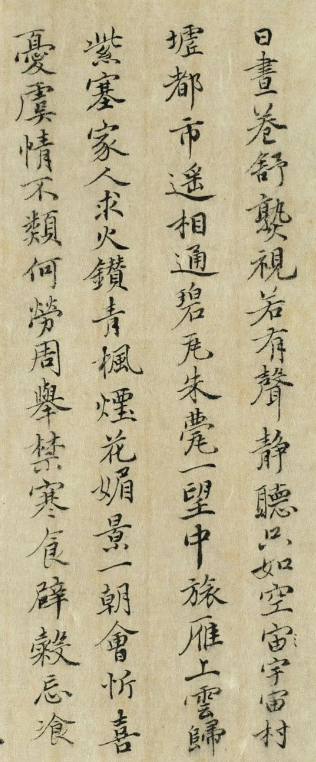 日晝卷舒熟視若有聲靜聽只如空宙宇宙村
墟都市遥相通碧瓦朱甍一望中旅雁上雲歸
紫塞家人求火鑚青楓煙花媚景一朝會忻喜
憂虞情不類何勞周舉禁寒食辟穀忘飡